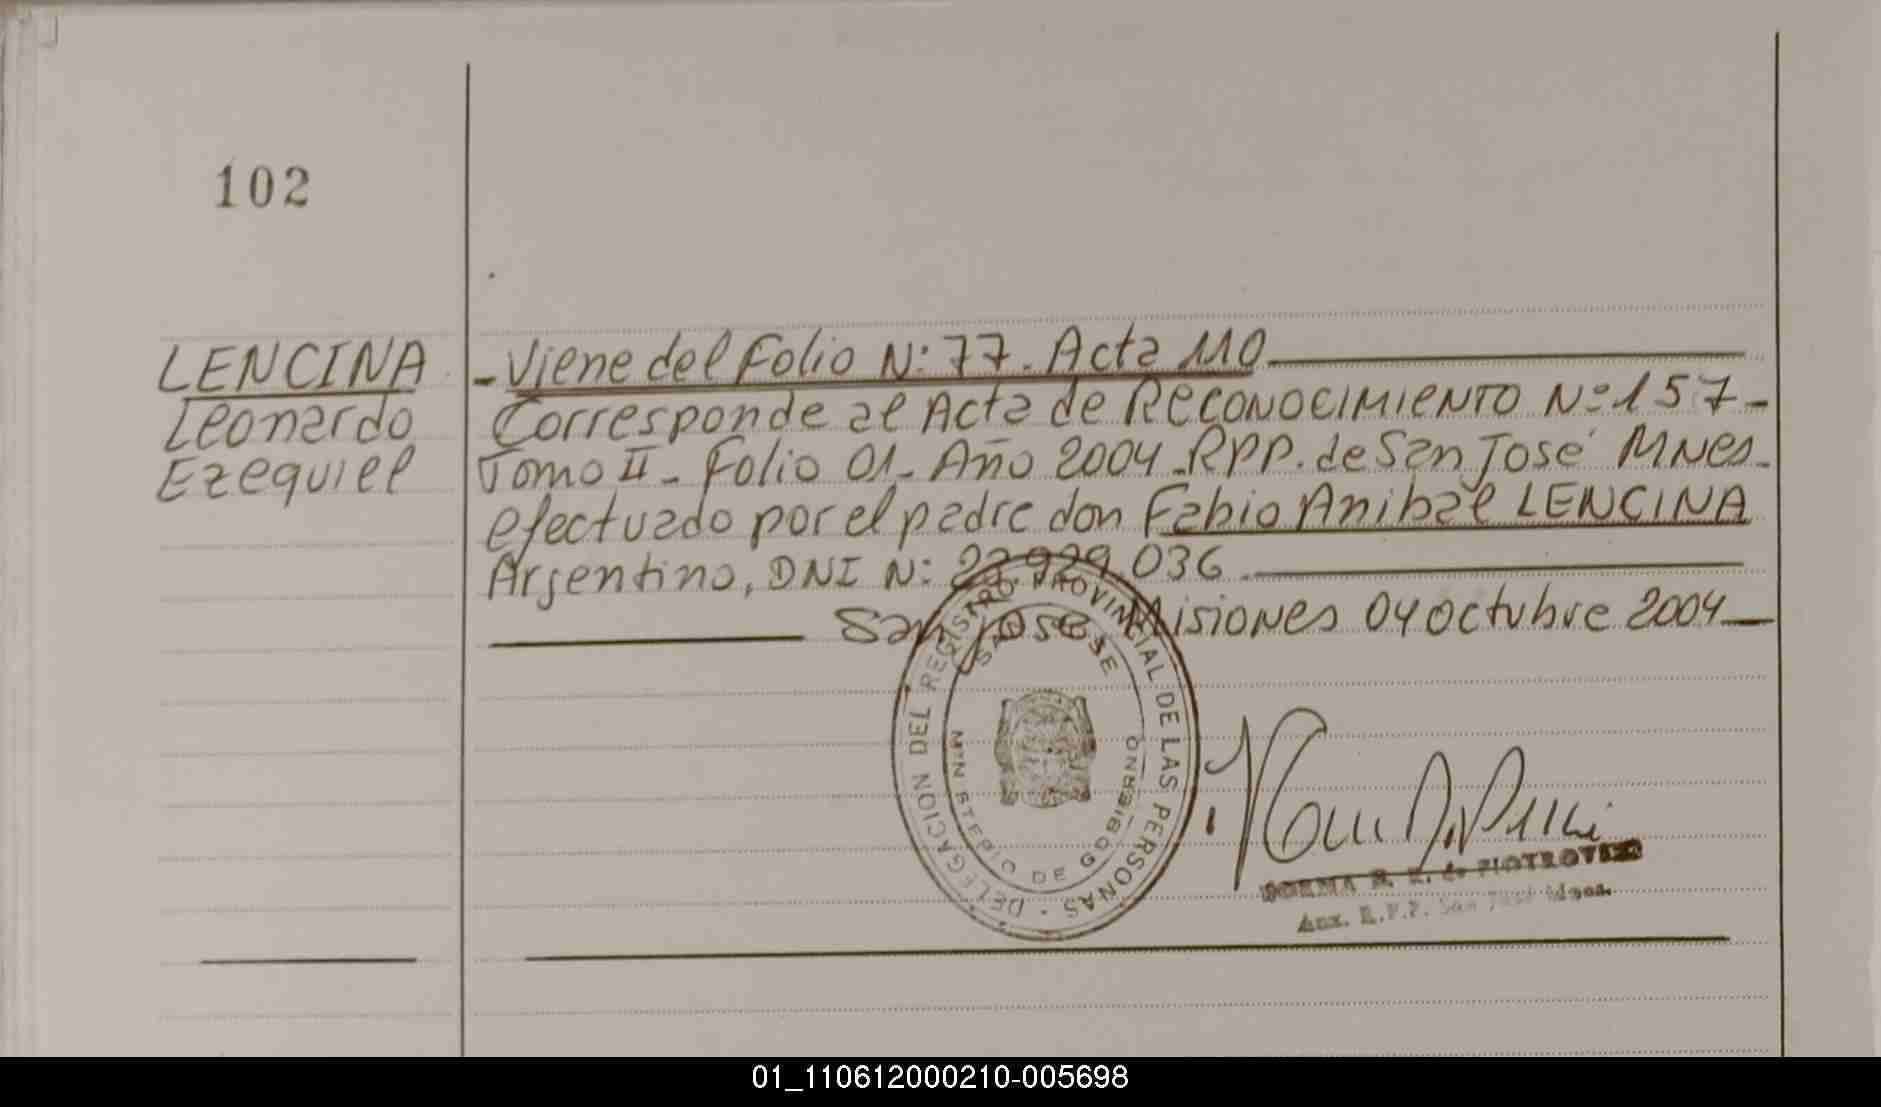 102
LENCINA
Leonardo
Ezequiel
- Viene del Folio N: 77. Acta 110
Corresponde al Acta de Reconocimiento Nº 157-
Tomo II - Folio 01 - Año 2004 - RPP. de San José Mnes-
efectuado por el padre don Fabio Anibal LENCINA
Argentino, DNI N: 929.036
San José Misiones 04 octubre 2004
DELEGACION DEL REGISTRO PROVINCIAL DE LAS PERSONAS
SAN JOSE
MINISTERIO DE GOBIERNO
NORMA de PIOTROVSKI
Aux. R.P.P. San José Mnes.
01_110612000210-005698